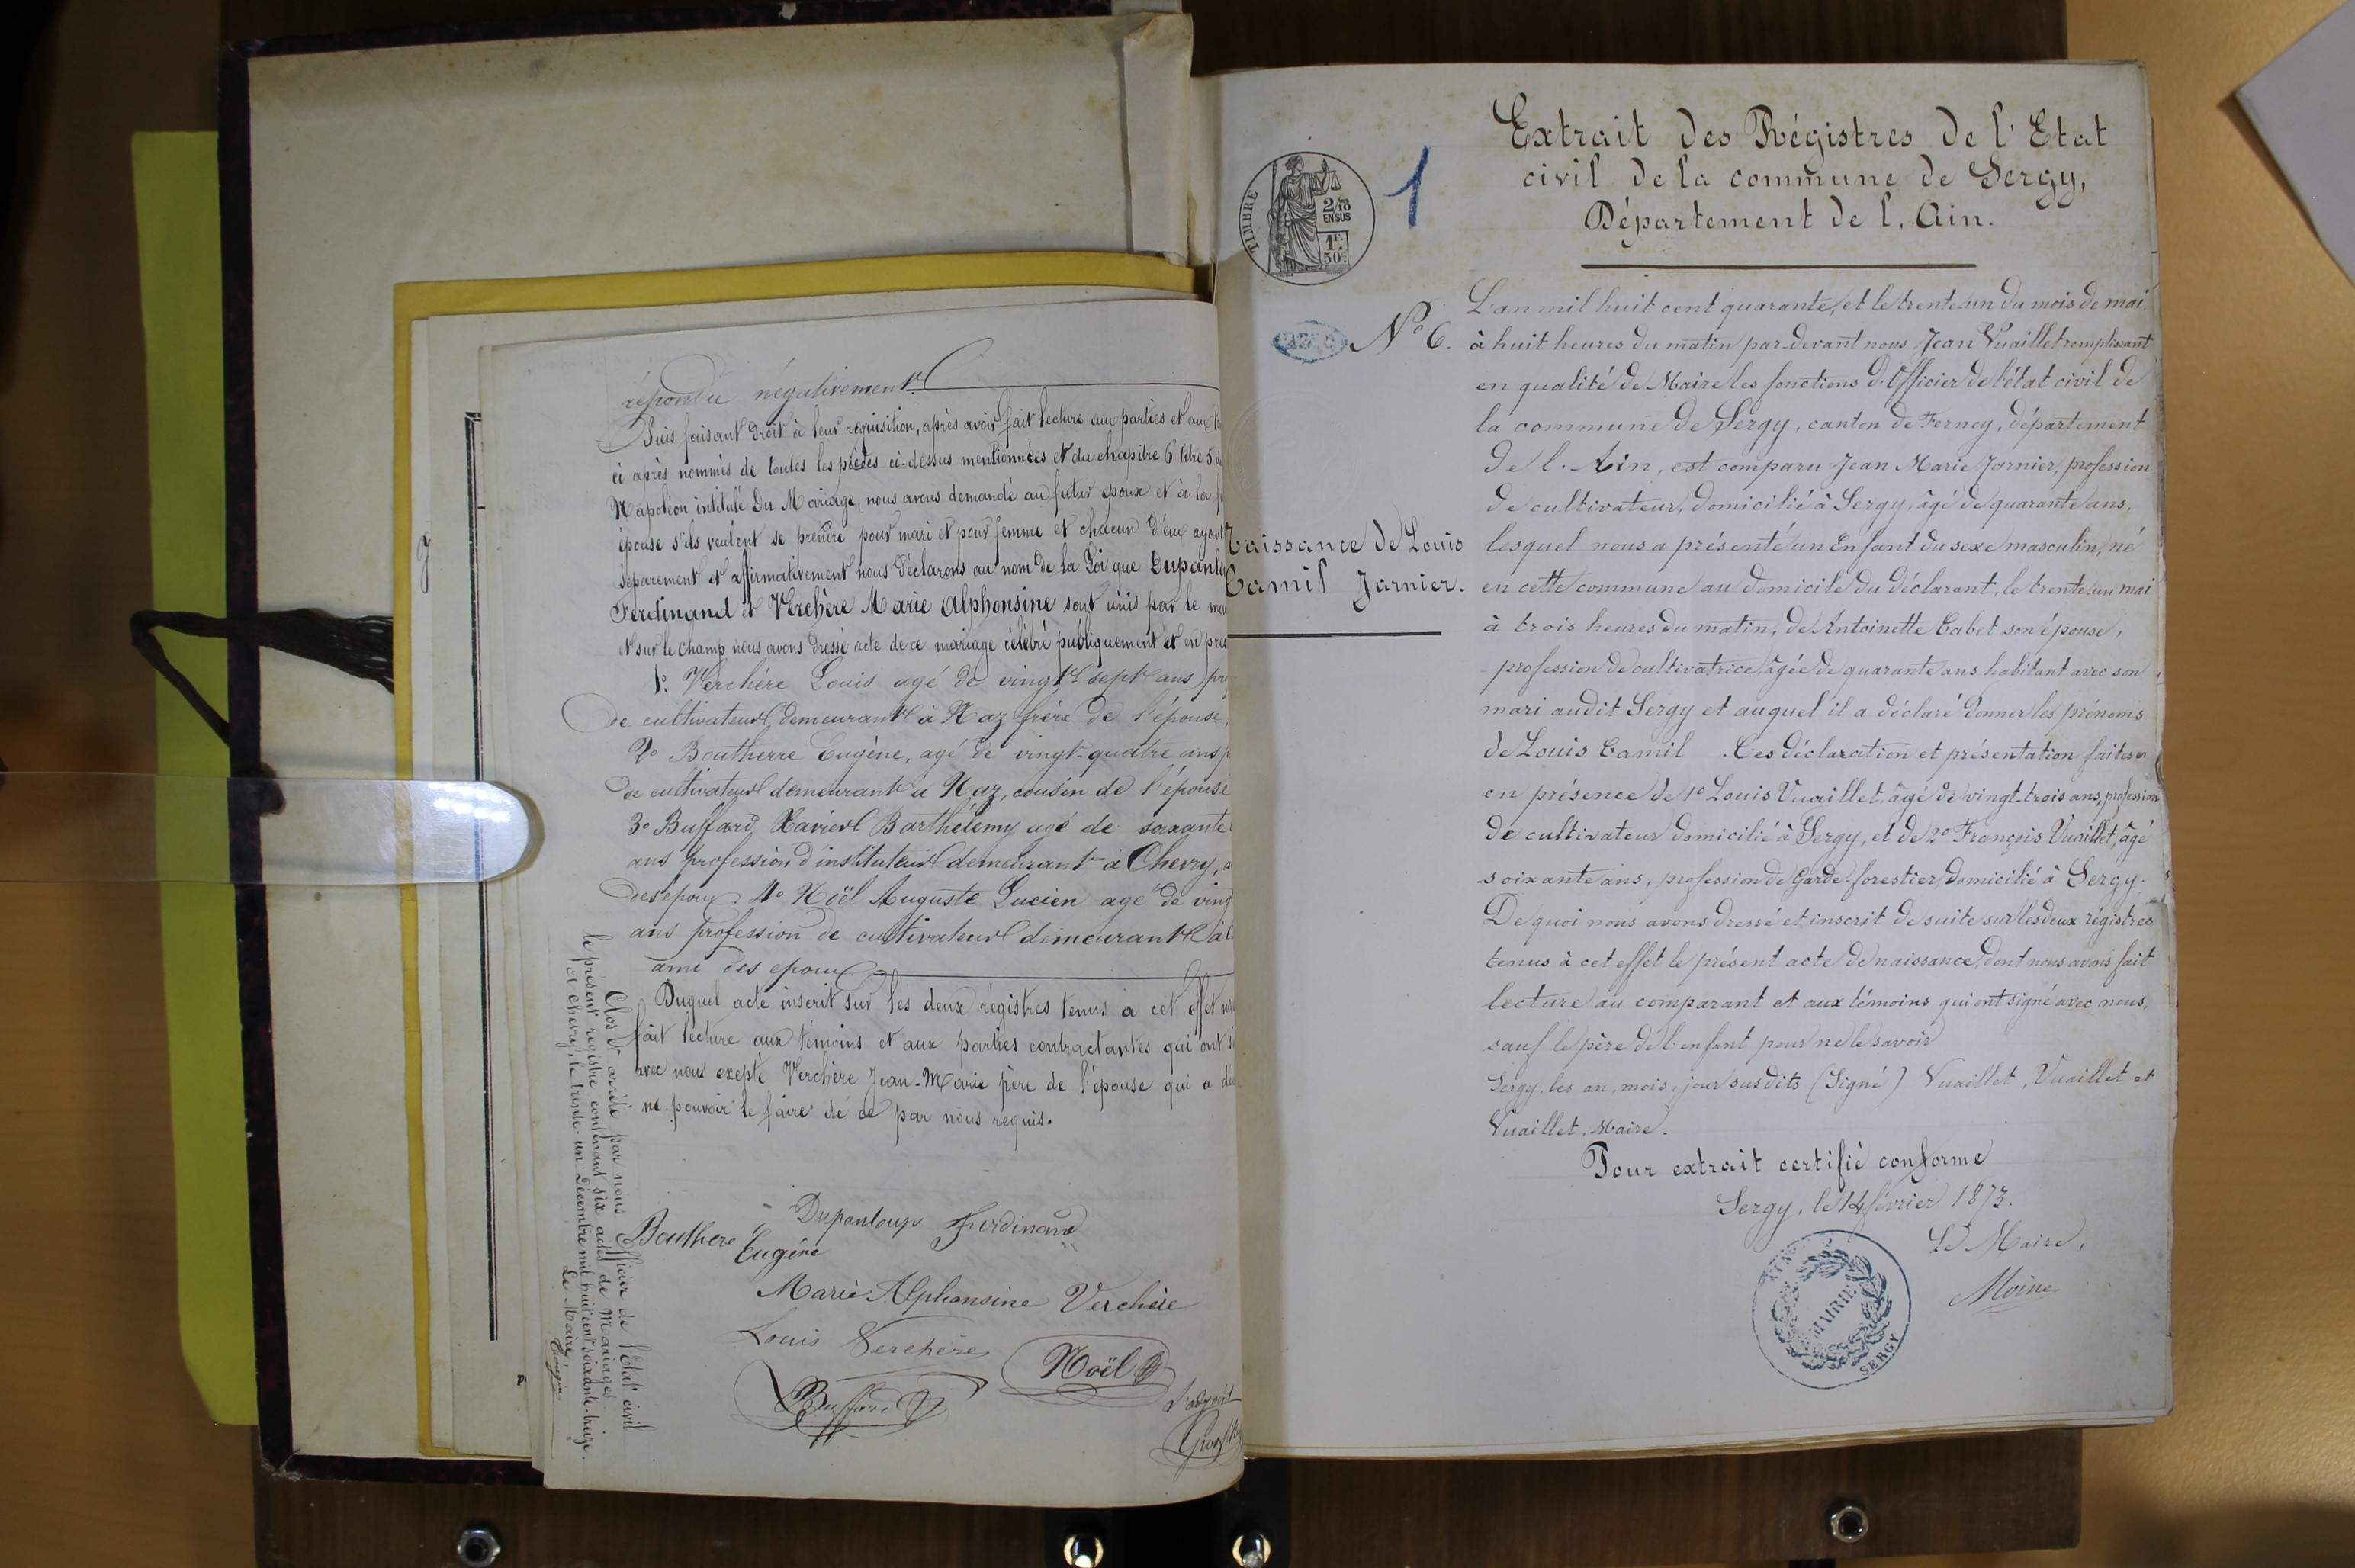 répondu négativement
Puis faisant droit à leur réquisition, après avoir fait lecture aux parties et aux
ci après nommés de toutes les pièces ci-dessus mentionnées et du chapitre 6 titre 5
Napoléon intitulé Du Mariage, nous avons demandé au futur époux et à la
épouse s'ils veulent se prendre pour mari et pour femme et chacun d'eux ayant
séparément et affirmativement nous déclarons au nom de la Loi que Dupanlou
Ferdinand et Verchère Marie Alphonsine sont unis par le
et sur le champ nous avons dressé acte de ce mariage célébré publiquement et en
1º Verchère Louis agé de vingt sept ans
de cultivateur demeurant à Naz frère de l'épouse,
2º Boutherre Eugène, agé de vingt-quatre ans
de cultivateur demeurant à Naz, cousin de l'épouse
3º Buffard Xavier Barthélemy agé de soixante
ans profession d'instituteur demeurant à Chevry,
des époux 4º Noël Auguste Lucien agé de vingt
ans profession de cultivateur demeurant à
ami des epoux
Duquel acte inscrit sur les deux régistres tenus à cet effet
fait lecture aux témoins et aux parties contractantes qui ont
avec nous exepté Verchère Jean-Marie père de l'épouse qui a
ne pouvoir le faire de ce par nous requis.
Dupanloup Ferdinand
Bouthere Eugène
Marie Alphonsine Verchère
Louis Verchère
Noël
Buffard
Clos et arrêté par nous Officier de l'Etat civil
le présent registre contenant six actes de Mariages
à Chevry, le trente-un décembre mil huit cent soixante-treize.
Le Maire
Extrait des Régistres de l'Etat
civil de la commune de Sergy,
Département de l'Ain.
TIMBRE
2/10
EN SUS
1F.
50c
1
Nº 6.
Naissance de Louis
Camil Jarnier.
L'an mil huit cent quarante, et le trente un du mois de mai
à huit heures du matin par-devant nous Jean Vuaillet remplissant
en qualité de Maire les fonctions d'Officier de l'état civil de
la commune de Sergy, canton de Ferney, département
de l'Ain, est comparu Jean Marie Jarnier, profession
de cultivateur, domicilié à Sergy, âgé de quarante ans,
lesquel nous a présenté un Enfant du sexe masculin, né
en cette commune au domicile du déclarant, le trente un mai
à trois heures du matin, de Antoinette Cabet son épouse,
profession de cultivatrice, âgée de quarante ans habitant avec son
mari audit Sergy et auquel il a déclaré donner les prénoms
de Louis Camil. Ces déclaration et présentation faites
en présence de 1º Louis Vuaillet âgé de vingt-trois ans, profession
de cultivateur domicilié à Sergy, et de 2º François Vuaillet, âgé
soixante ans, profession de Garde-forestier, domicilié à Sergy.
De quoi nous avons dressé et inscrit de suite sur les deux régistres
tenus à cet effet le présent acte de naissance, dont nous avons fait
lecture au comparant et aux témoins qui ont signé avec nous,
sauf le père de l'enfant pour ne le savoir
Sergy, les an, mois, jour susdits (Signé) Vuaillet, Vuaillet et
Vuaillet, Maire.
Pour extrait certifié conforme
Sergy, le 14 février 1873.
Le Maire,
Moine
MAIRIE
SERGY